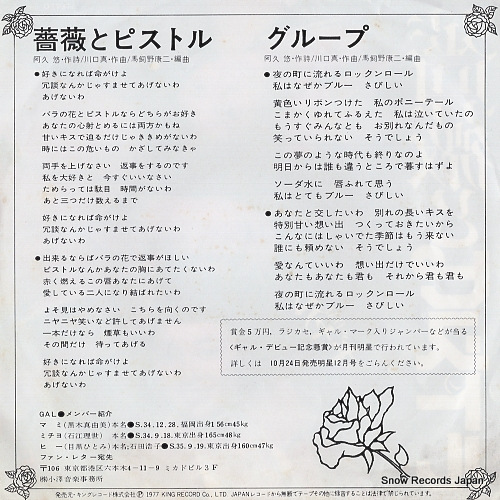 薔薇とピストル
阿久 悠・作詩/川口真・作曲/馬飼野康二・編曲
●好きになれば命がけよ
冗談なんかじゃすませてあげないわ
あげないわ
バラの花とピストルならどちらがお好き
あなたの心射とめるには両方かもね
甘いキスで迫るだけじゃききめがないわ
時にはこの危いもの かざしてみなきゃ
両手を上げなさい 返事をするのです
私を大好きと 今すぐいいなさい
ためらっては駄目 時間がないわ
あと三つだけ数えるまで
好きになれば命がけよ
冗談なんかじゃすませてあげないわ
あげないわ
●出来るならばバラの花で返事がほしい
ピストルなんかあなたの胸にあてたくないわ
赤く燃えるこの唇あなたにあげて
愛している二人になり結ばれたいわ
よそ見はやめなさい こちらを向くのです
ニヤニヤ笑いなど許してあげません
一本だけなら 煙草もいいわ
その間だけ 待ってあげる
好きになれば命がけよ
冗談なんかじゃすませてあげないわ
あげないわ
GAL●メンバー紹介
マ ミ(黒木真由美)本名●S.34.12.28.福岡出身156cm45kg
ミチヨ(石江理世) 本名●S.34.9.18.東京出身165cm48kg
ヒ ー(目黒ひとみ)本名;石田浩子●S.35.9.19.東京出身160cm47kg
ファン・レター宛先
〒106 東京都港区六本木4-11-9 ミカドビル3F
㈱小澤音楽事務所
グループ
阿久 悠・作詩/川口真・作曲/馬飼野康二・編曲
●夜の町に流れるロックンロール
私はなぜかブルー さびしい
黄色いリボンつけた 私のポニーテール
こまかくゆれてふるえた 私は泣いていたの
もうすぐみんなとも お別れなんだもの
笑っていられない そうでしょう
この夢のような時代も終りなのよ
明日からは誰も違うところで暮すはずよ
ソーダ水に 唇ふれて思う
私はとてもブルー さびしい
●あなたと交したいわ 別れの長いキスを
特別甘い想い出 つくっておきたいから
こんなにはしゃいでた季節はもう来ない
誰にも頼めない そうでしょう
愛なんていいわ 想い出だけでいいわ
あなたもあなたも君も それから君も君も
夜の町に流れるロックンロール
私はなぜかブルー さびしい
賞金5万円、ラジカセ、ギャル・マーク入りジャンパーなどが当る
〈ギャル・デビュー記念懸賞〉が月刊明星で行われています。
詳しくは 10月24日発売明星12月号をごらんください。
発売元・キングレコード株式会社 Ⓟ1977 KING RECORD Co., LTD. JAPAN レコードから無断でテープその他に録音することは法律で禁じられています。
Snow Records Japan